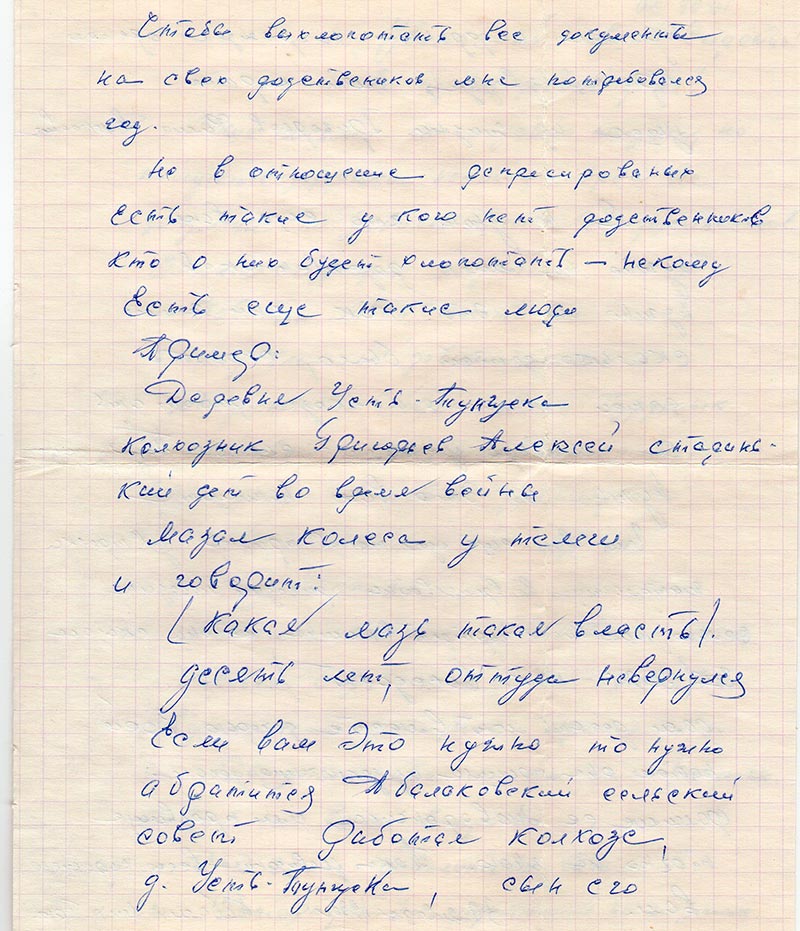 Чтобы выхлопотать все документы
на свох родствеников мне потребовался
год.
Но в отношение репресированых
Есть такие у кого нет родственников
Кто о них будет хлопотать – некому
Есть еще такие люди
Пример:
Деревня Усть-Тунгуска
Колхозник Григорьев Алексей старинь-
кий дет во время войны
Мазал колеса у телеги
и говорит:
(Какая мазь такая власть).
десять лет, оттуда невернулся
Если вам Это нужно то нужно
абратится Абалаковский сельский
совет Работал колхозе,
д. Усть-Тунгуска, сын его